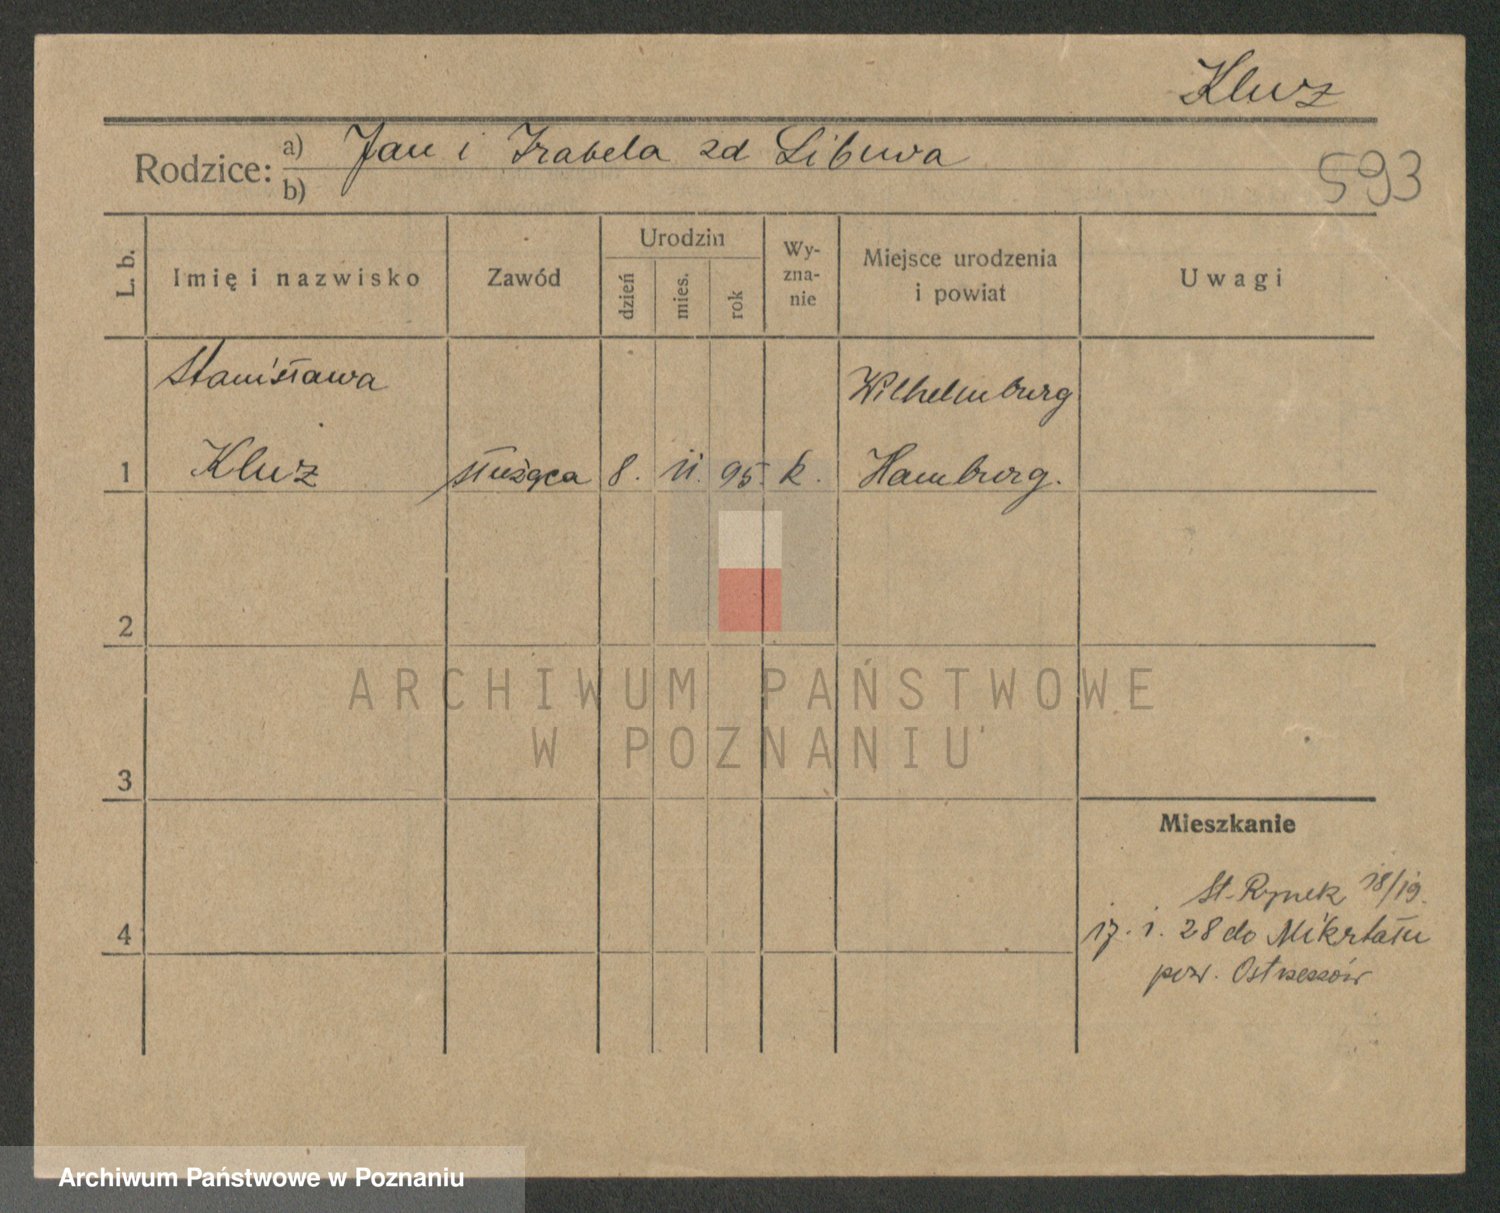 Kluz
Rodzice: a) Jan i Izabela zd Libuwa
b)
593
L. b. Imię i nazwisko Zawód Urodzin dzień mies. rok Wy-zna-nie Miejsce urodzenia i powiat Uwagi
Stanisława Wilhelmburg
1 Kluz służąca 8. 11. 95. k. Hamburg.
2
ARCHIWUM PAŃSTWOWE
W POZNANIU
3
Mieszkanie
St. Rynek 18/19.
17. 1. 28 do Mikstatu
4
pow. Ostrzeszów
Archiwum Państwowe w Poznaniu